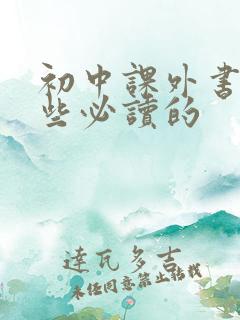 初中課外書
些必讀的
達瓦多吉
未经同意禁止转载